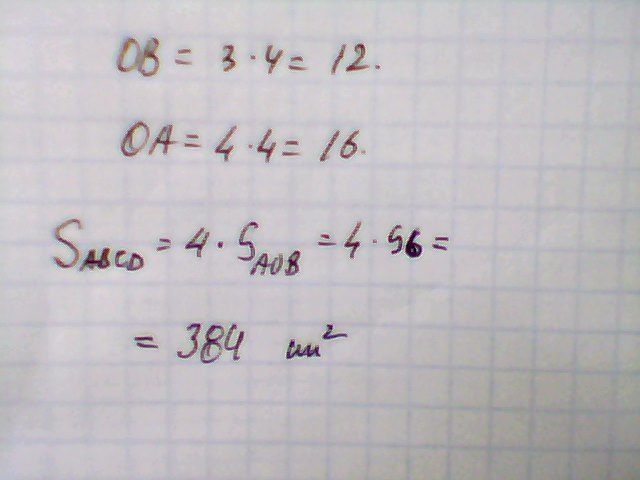 OB = 3 · 4 = 12.
OA = 4 · 4 = 16.
S_ABCD = 4 · S_AOB = 4 · 96 =
= 384 см²